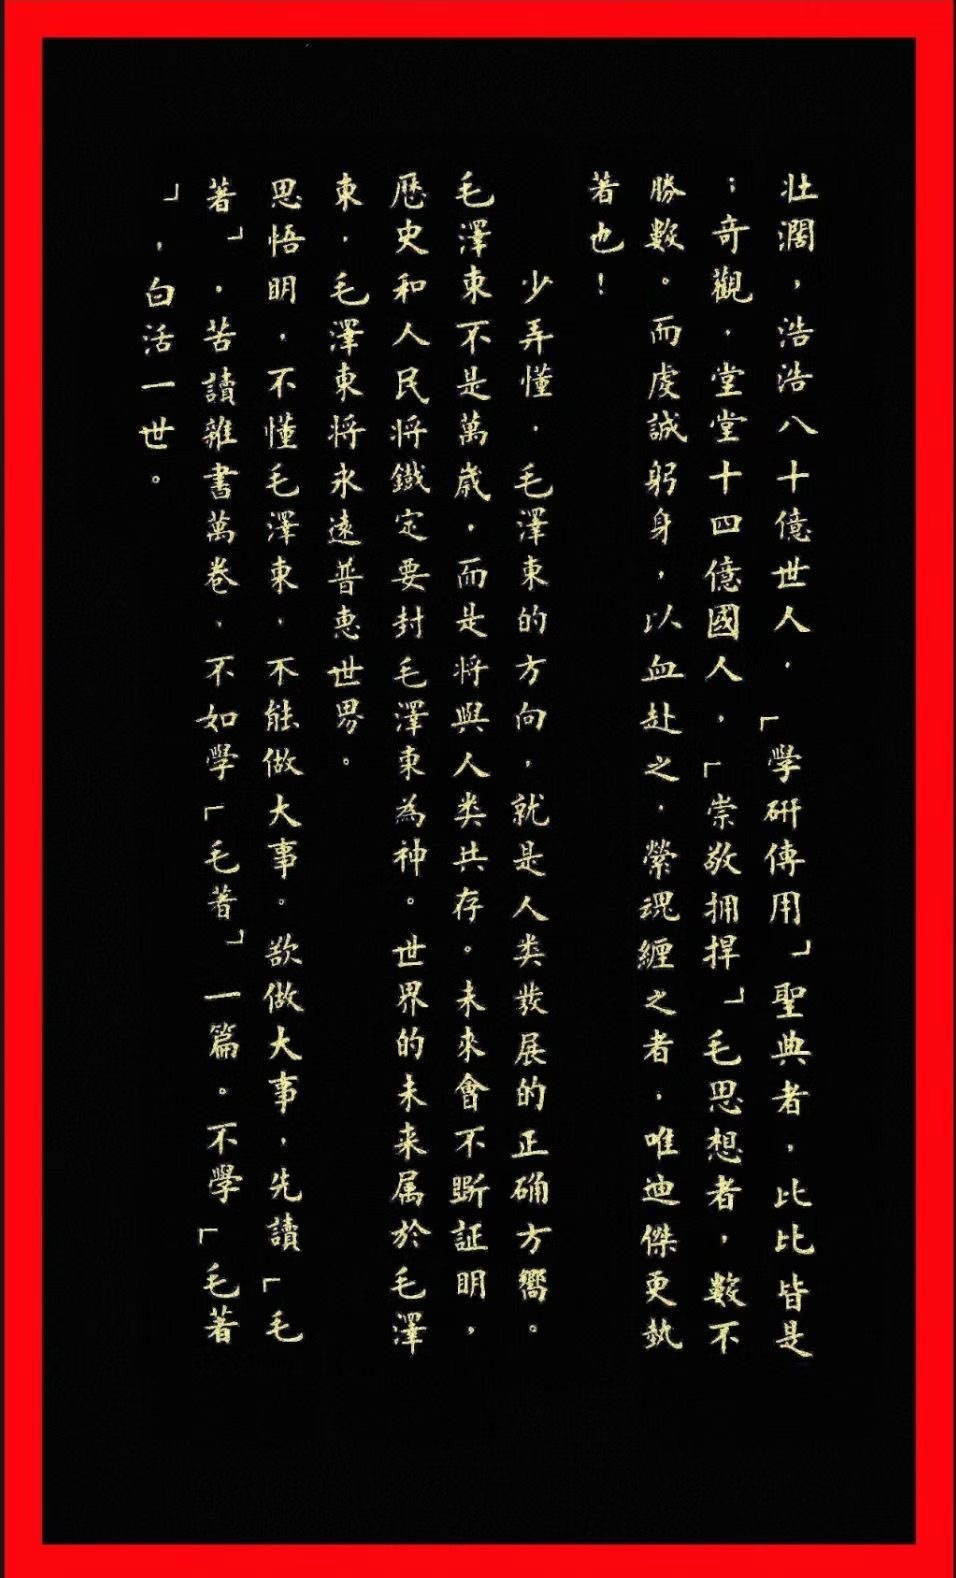 壮濶，浩浩八十億世人，「學研傳用」聖典者，比比皆是
；奇觀，堂堂十四億國人，「崇敬拥捍」毛思想者，數不
勝數。而虔誠躬身，以血赴之，縈魂纏之者，唯迪傑更執
著也！
少弄懂，毛澤東的方向，就是人类發展的正确方嚮。
毛澤東不是萬歲，而是将與人类共存。未來會不斷証明，
歷史和人民将鐵定要封毛澤東為神。世界的未来属於毛澤
東，毛澤東将永遠普惠世界。
思悟明，不懂毛澤東，不能做大事。欲做大事，先讀「毛
著」。苦讀雜書萬卷，不如學「毛著」一篇。不學「毛著
」，白活一世。